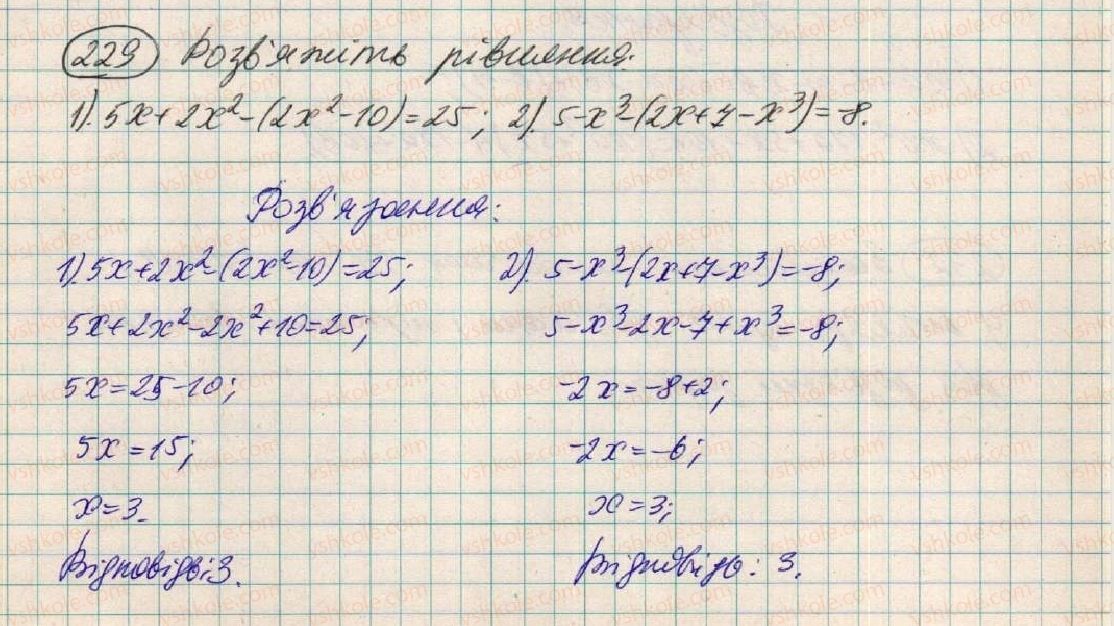 229 Розв'яжіть рівняння:
1). 5x+2x²-(2x²-10)=25; 2). 5-x³-(2x+7-x³)=-8.
Розв'язання:
1). 5x+2x²-(2x²-10)=25;
5x+2x²-2x²+10=25;
5x=25-10;
5x=15;
x=3.
Відповідь: 3.
2). 5-x³-(2x+7-x³)=-8;
5-x³-2x-7+x³=-8;
-2x=-8+2;
-2x=-6;
x=3;
Відповідь: 3.